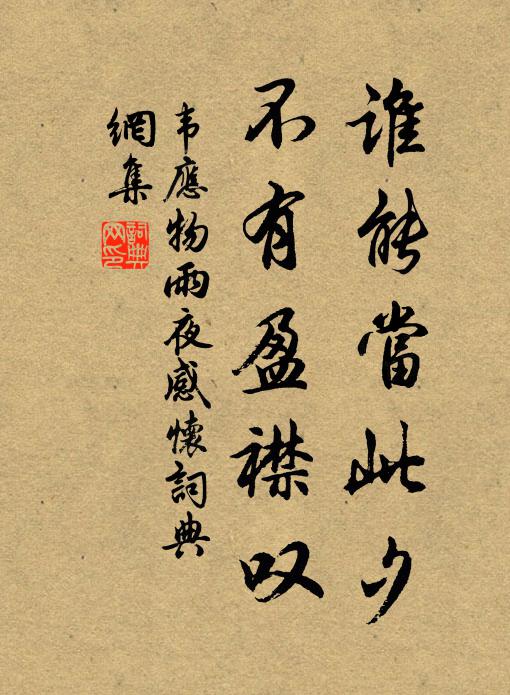 誰能當此夕
不有盈襟叹
韦應物雨夜感懷詞典
網集
詞典
网印